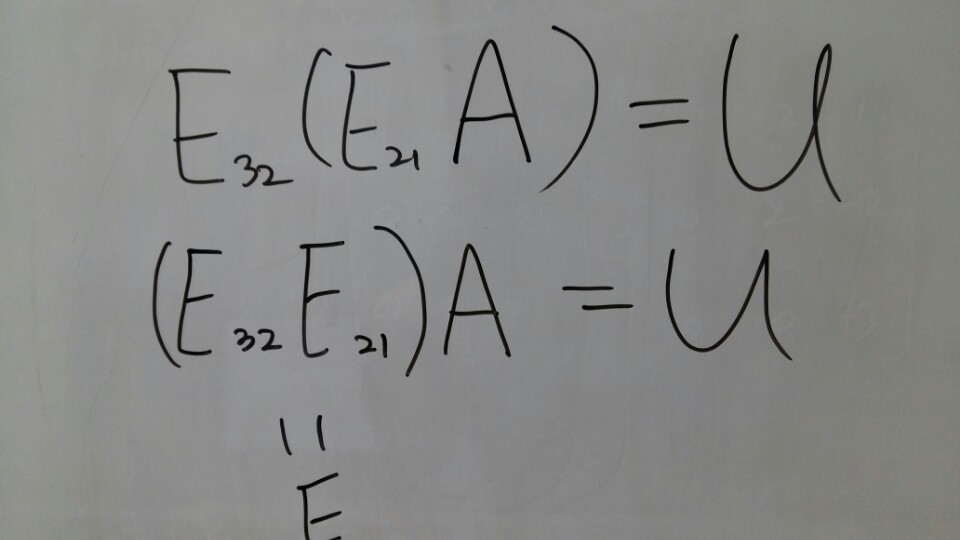 E₃₂(E₂₁A) = U
(E₃₂E₂₁)A = U
=
E